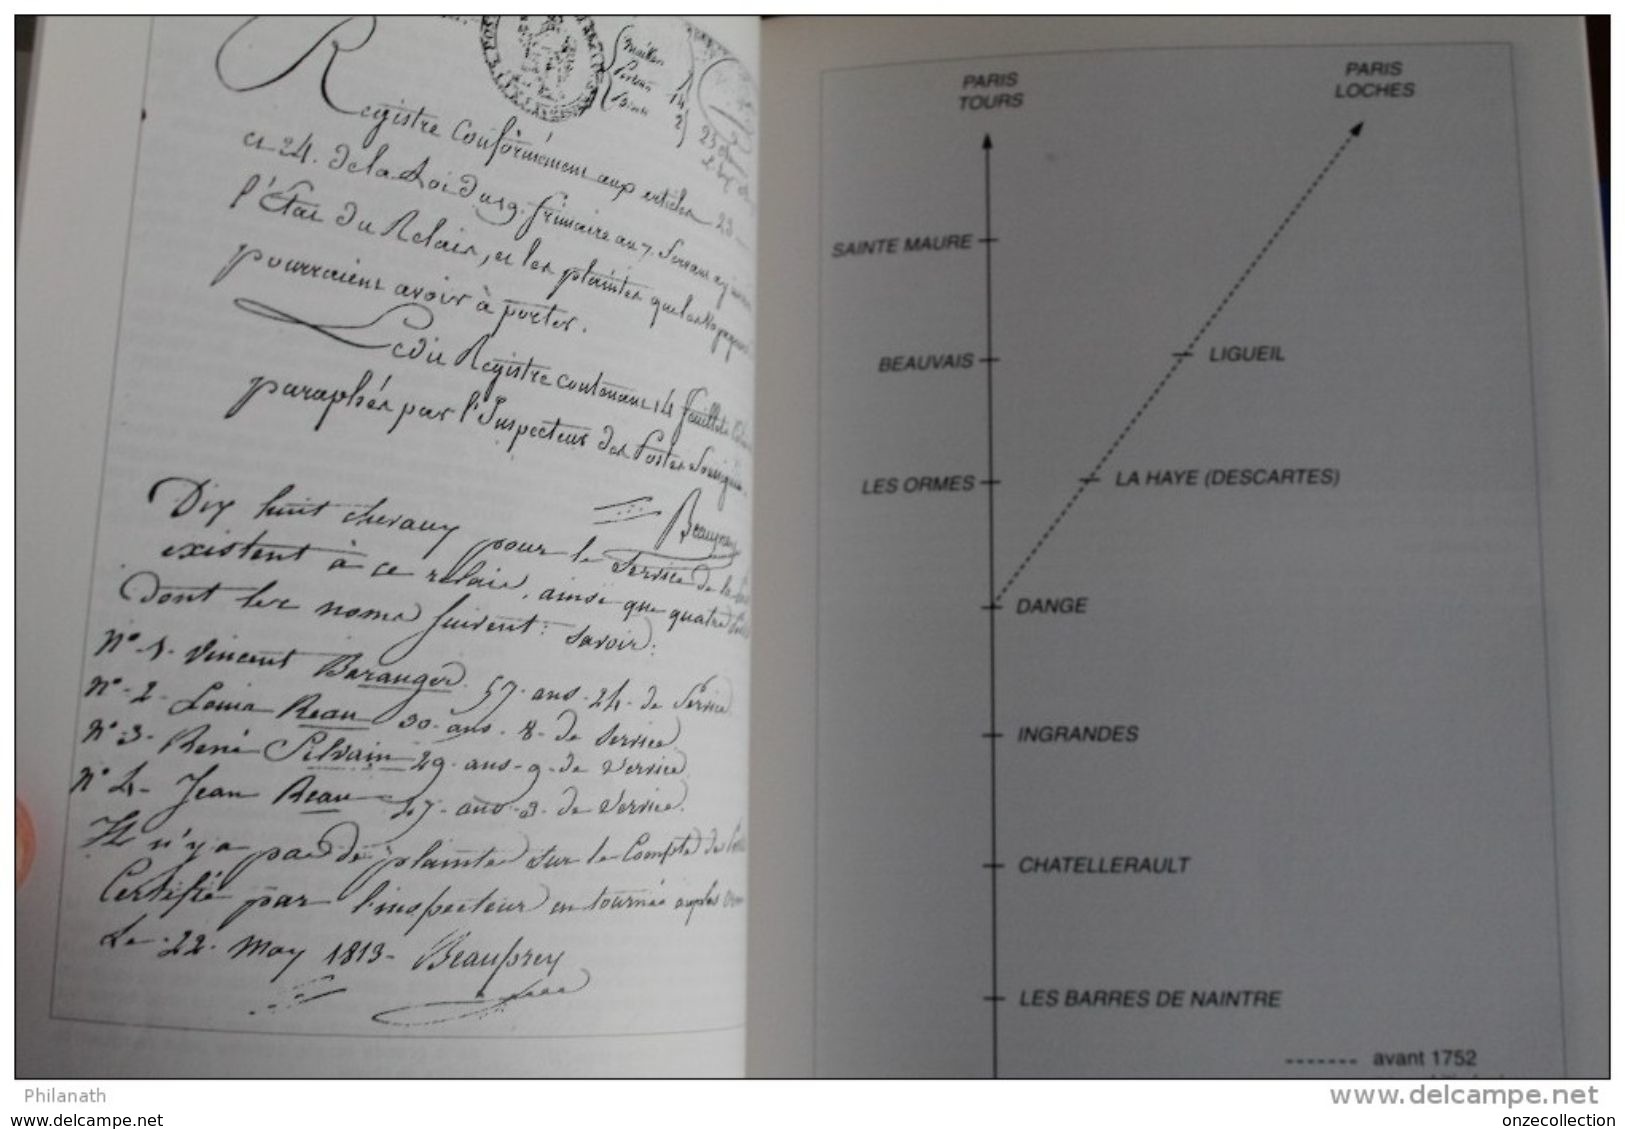 Registre Conformément aux articles 23
et 24. de la Loi du 19. frimaire an 7. Servant à
l'Etat du Relais, et les plaintes que les Voyageurs
pourraient avoir à porter.
Ledit Registre contenant 14 feuillets
paraphés par l'Inspecteur des Postes Soussigné.
Beauprey
Dix huit chevaux pour le Service de la
existent à ce relais, ainsi que quatre
Dont les noms suivent: Savoir:
N° 1. Vincent Baranger 57 ans 24 de Service
N° 2 Louis Reau 30 ans 8 de Service
N° 3 René Silvain 29 ans 9 de Service
N° 4 Jean Reau 47 ans 3 de Service.
Il n'y a pas de plaintes sur le Compte de
Certifié par l'inspecteur en tournée aux
Le 22 May 1813 Beauprey
PARIS
TOURS
PARIS
LOCHES
SAINTE MAURE
BEAUVAIS
LIGUEIL
LES ORMES
LA HAYE (DESCARTES)
DANGE
INGRANDES
CHATELLERAULT
LES BARRES DE NAINTRE
avant 1752
Philanath
www.delcampe.net
www.delcampe.net
onzecollection